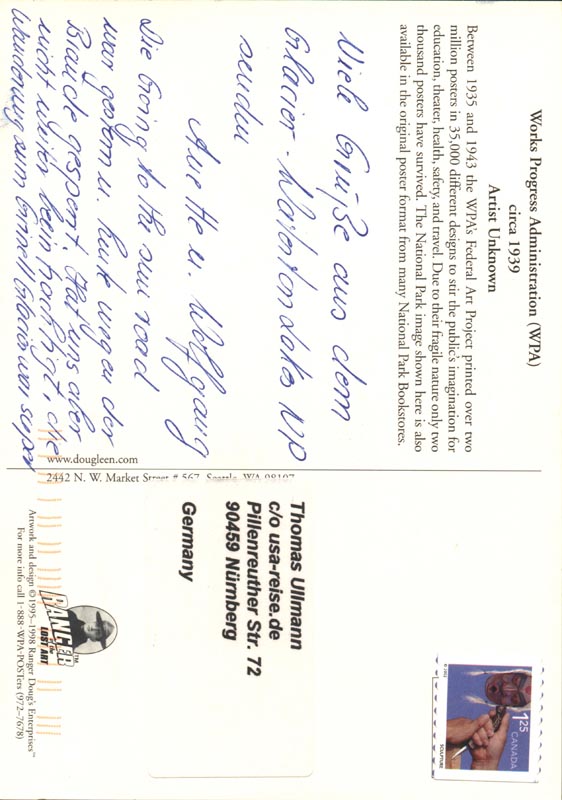 Works Progress Administration (WPA)
circa 1939
Artist Unknown
Between 1935 and 1943 the WPA's Federal Art Project printed over two
million posters in 35,000 different designs to stir the public's imagination for
education, theater, health, safety, and travel. Due to their fragile nature only two
thousand posters have survived. The National Park image shown here is also
available in the original poster format from many National Park Bookstores.
Viele Grüße aus dem
Glacier-Watertonlakes NP
senden
Anette u. Wolfgang
Die Going to the sun road
war gestern u. heute wegen der
Brände gesperrt. Hat uns aber
nicht weiter beeinträchtigt, die
Wanderung zum Grinnell Glacier war super
www.dougleen.com
2442 N. W. Market Street # 567, Seattle, WA 98107
Thomas Ullmann
c/o usa-reise.de
Pillenreuther Str. 72
90459 Nürnberg
Germany
RANGER
of the
LOST ART
TM
Artwork and design ©1995-1998 Ranger Doug's Enterprises™
For more info call 1-888-WPA-POSTers (972-7678)
1.25
CANADA
SCULPTURE
© 2002